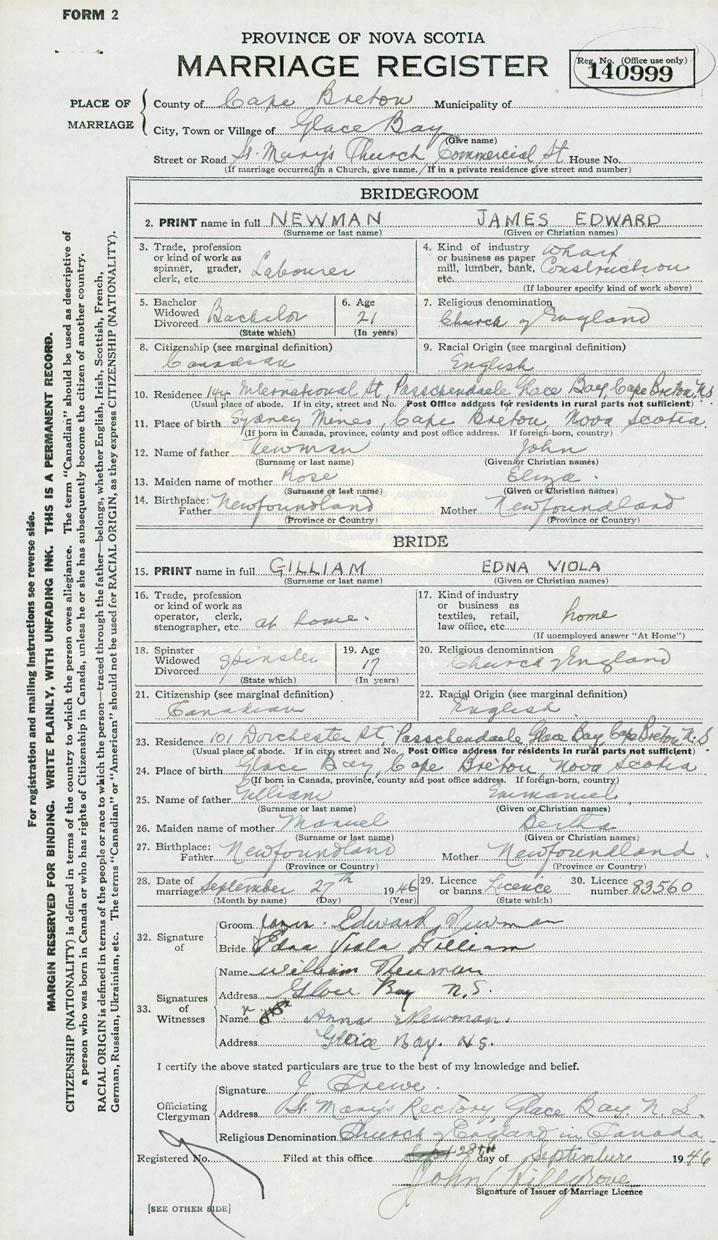 FORM 2
PROVINCE OF NOVA SCOTIA
MARRIAGE REGISTER
Reg. No. (Office use only)
140999
PLACE OF MARRIAGE
County of Cape Breton Municipality of
City, Town or Village of Glace Bay
(Give name)
Street or Road St. Mary's Church Commercial St House No.
(If marriage occurred in a Church, give name. If in a private residence give street and number)
BRIDEGROOM
2. PRINT name in full NEWMAN JAMES EDWARD
(Surname or last name) (Given or Christian names)
3. Trade, profession or kind of work as spinner, grader, clerk, etc. Labourer
4. Kind of industry or business as paper mill, lumber, bank, etc. Wharf Construction
(If labourer specify kind of work above)
5. Bachelor Widowed Divorced Bachelor
(State which)
6. Age 21
(In years)
7. Religious denomination
Church of England
8. Citizenship (see marginal definition)
Canadian
9. Racial Origin (see marginal definition)
English
10. Residence 144 International St, Passchendaele Glace Bay, Cape Breton N.S.
(Usual place of abode. If in city, street and No. Post Office address for residents in rural parts not sufficient)
11. Place of birth Sydney Mines, Cape Breton, Nova Scotia
(If born in Canada, province, county and post office address. If foreign-born, country)
12. Name of father Newman John
(Surname or last name) (Given or Christian names)
13. Maiden name of mother Rose Eliza
(Surname or last name) (Given or Christian names)
14. Birthplace: Father Newfoundland Mother Newfoundland
(Province or Country) (Province or Country)
BRIDE
15. PRINT name in full GILLIAM EDNA VIOLA
(Surname or last name) (Given or Christian names)
16. Trade, profession or kind of work as operator, clerk, stenographer, etc. at home.
17. Kind of industry or business as textiles, retail, law office, etc. home
(If unemployed answer "At Home")
18. Spinster Widowed Divorced Spinster
(State which)
19. Age 17
(In years)
20. Religious denomination
Church of England
21. Citizenship (see marginal definition)
Canadian
22. Racial Origin (see marginal definition)
English
23. Residence 101 Dorchester St, Passchendaele Glace Bay, Cape Breton N.S.
(Usual place of abode. If in city, street and No. Post Office address for residents in rural parts not sufficient)
24. Place of birth Glace Bay, Cape Breton Nova Scotia
(If born in Canada, province, county and post office address. If foreign-born, country)
25. Name of father Gilliam Emmanuel
(Surname or last name) (Given or Christian names)
26. Maiden name of mother Manuel Bertha
(Surname or last name) (Given or Christian names)
27. Birthplace: Father Newfoundland Mother Newfoundland.
(Province or Country) (Province or Country)
28. Date of marriage September 27th 1946
(Month by name) (Day) (Year)
29. Licence or banns Licence
(State which)
30. Licence number 83560
32. Signature of
Groom Edward Newman
Bride Edna Viola Gilliam
33. Signatures of Witnesses
Name William Newman
Address Glace Bay N.S.
Name Anna Newman.
Address Glace Bay. N.S.
I certify the above stated particulars are true to the best of my knowledge and belief.
Officiating Clergyman
Signature J. Crewe.
Address St. Mary's Rectory, Glace Bay, N.S.
Religious Denomination Church of England in Canada
Registered No. Filed at this office 28th day of September 1946
John Killgrove
Signature of Issuer of Marriage Licence
[SEE OTHER SIDE]
For registration and mailing instructions see reverse side.
MARGIN RESERVED FOR BINDING. WRITE PLAINLY, WITH UNFADING INK. THIS IS A PERMANENT RECORD.
CITIZENSHIP (NATIONALITY) is defined in terms of the country to which the person owes allegiance. The term "Canadian" should be used as descriptive of
a person who was born in Canada or who has rights of Citizenship in Canada, unless he or she has subsequently become the citizen of another country.
RACIAL ORIGIN is defined in terms of the people or race to which the person—traced through the father—belongs, whether English, Irish, Scottish, French,
German, Russian, Ukrainian, etc. The terms "Canadian" or "American" should not be used for RACIAL ORIGIN, as they express CITIZENSHIP (NATIONALITY).